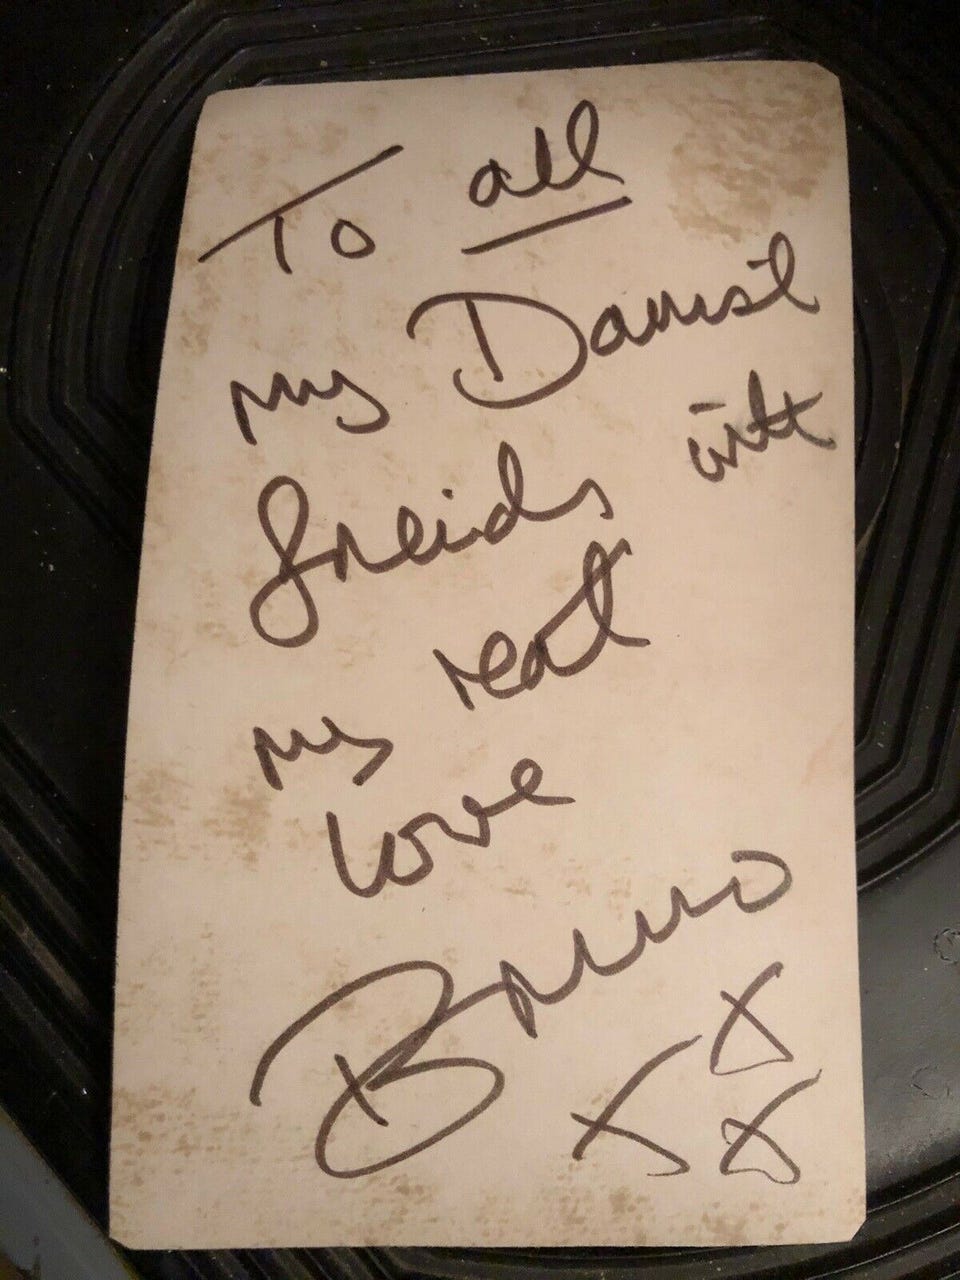 To all
my Danish
freinds with
my real
love
Bruno
X
X X